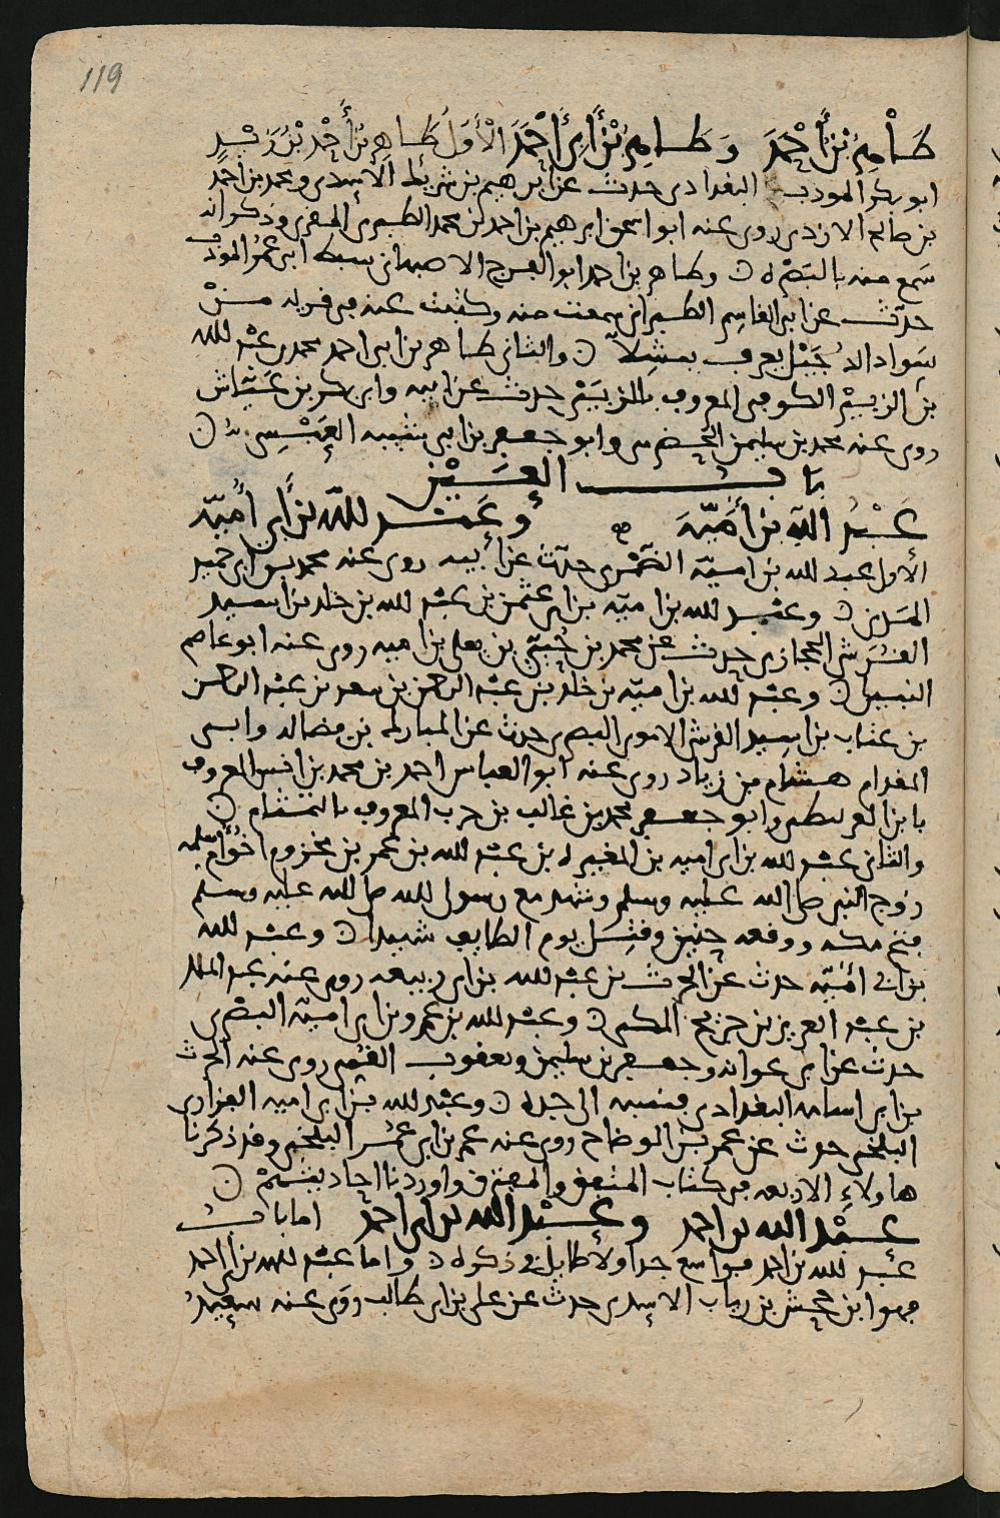 119
طَاهِرُ بْنُ أَحْمَدَ وَطَاهِرُ بْنُ أَبِي أَحْمَدَ الْأَوَّلُ طَاهِرُ بْنُ أَحْمَدَ بْنِ
ابو بكر المودب البغدادي حدث عن ابرهيم بن شريك الاسدي ومحمد بن احمد
بن صالح الازدي روى عنه ابو اسحق ابرهيم بن احمد بن محمد الطبري المقري وذكر انه
سمع منه بالبصرة وطاهر بن احمد ابو الفرج الاصبهاني سبط ابي عمر المودب
حدث عن ابي القاسم الطبراني سمعت منه وكتبت عنه في قرية من
سواد الدجيل يعرف والثاني طاهر بن ابي احمد محمد بن عبد الله
بن الزبير الكوفي المعروف بالزبيري حدث عن ابيه وابي بكر بن عياش
روى عنه محمد بن سليمن الحضرمي وابو جعفر بن ابي شيبه العبسي
باب العين
عبد الله بن أمية وعبد الله بن أبي أمية
الأول عبد الله بن امية الضمري حدث عن أبيه روى عنه محمد بن ابي حميد
المديني وعبد الله بن امية بن ابي عثمن بن عبد الله بن خلد بن اسيد
القرشي الحجازي حدث عن محمد بن حيي بن يعلى بن اميه روى عنه ابو عاصم
النبيل وعبد الله بن امية بن خلد بن عبد الرحمن بن سعد بن عبد الرحمن
بن عتاب بن اسيد القرشي الاموي البصري حدث عن المبارك بن فضاله وابي
المقدام هشام بن زياد روى عنه ابو العباس احمد بن محمد بن انس المعروف
بابن القربيطي وابو جعفر محمد بن غالب بن حرب المعروف بالتمتام
والثاني عبد الله بن ابي اميه بن المغيره بن عبد الله بن عمر بن مخزوم اخو أم سلمه
زوج النبي صلى الله عليه وسلم وشهد مع رسول الله صلى الله عليه وسلم
فتح مكه ووقعه حنين وقتل يوم الطايف شهيدا وعبد الله
بن ابي امية حدث عن الحرث بن عبد الله بن ابي ربيعه روى عنه عبد الملك
بن عبد العزيز بن جريج المكي وعبد الله بن عمرو بن ابي امية البصري
حدث عن ابي عوانه وجعفر بن سليمن ويعقوب القمي روى عنه الحرث
بن ابي اسامه البغدادي فنسبه الى جده وعبد الله بن ابي اميه الفزاري
البلخي حدث عن عمر بن الوضاح روى عنه عمر بن ابي عمر البلخي وقد ذكرنا
هاولاء الاربعه في كتاب المتفق والمفترق واوردنا احاديثهم
عبد الله بن احمد وعبد الله بن ابي احمد اما باب
عبد الله بن احمد فواسع جدا ولا طايل في ذكره واما عبد الله بن ابي احمد
فهو ابن جحش بن رياب الاسدي حدث عن علي بن ابي طالب روى عنه سعيد